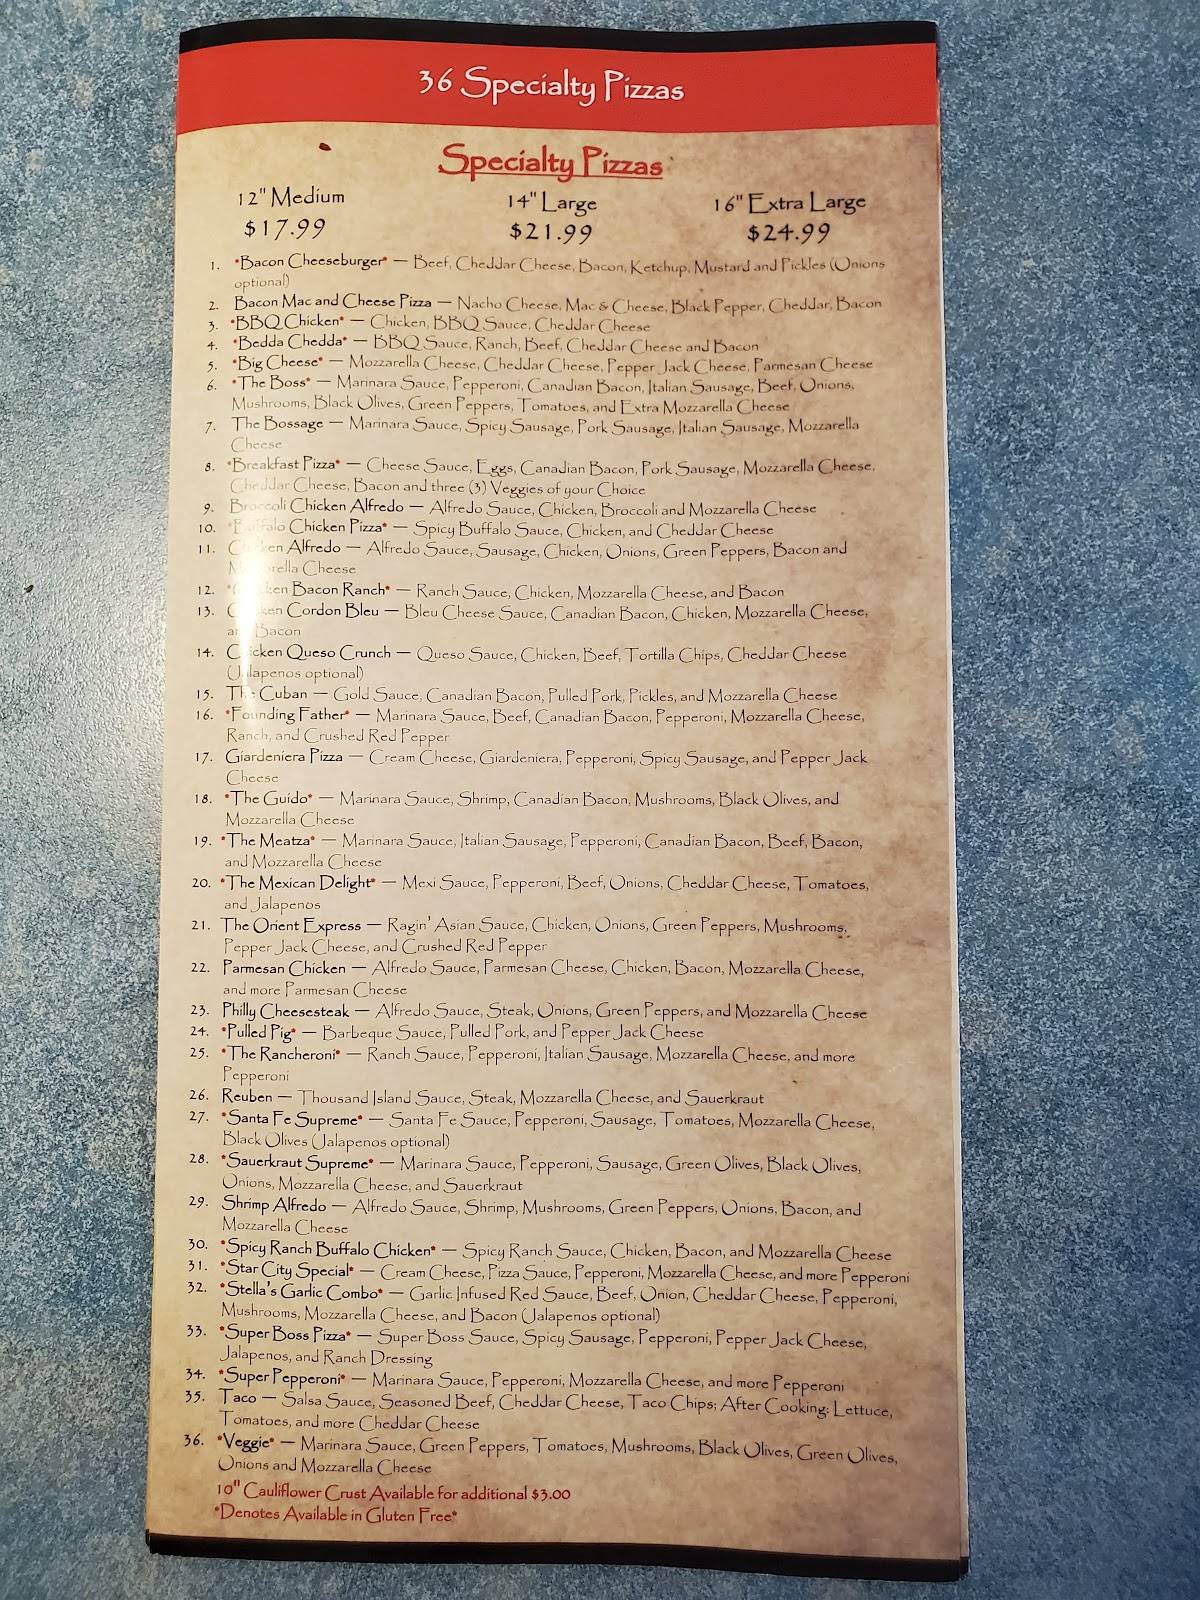 36 Specialty Pizzas
Specialty Pizzas
12" Medium 14" Large 16" Extra Large
$17.99 $21.99 $24.99
1. *Bacon Cheeseburger* — Beef, Cheddar Cheese, Bacon, Ketchup, Mustard and Pickles (Onions
optional)
2. Bacon Mac and Cheese Pizza — Nacho Cheese, Mac & Cheese, Black Pepper, Cheddar, Bacon
3. *BBQ Chicken* — Chicken, BBQ Sauce, Cheddar Cheese
4. *Bedda Chedda* — BBQ Sauce, Ranch, Beef, Cheddar Cheese and Bacon
5. *Big Cheese* — Mozzarella Cheese, Cheddar Cheese, Pepper Jack Cheese, Parmesan Cheese
6. *The Boss* — Marinara Sauce, Pepperoni, Canadian Bacon, Italian Sausage, Beef, Onions,
Mushrooms, Black Olives, Green Peppers, Tomatoes, and Extra Mozzarella Cheese
7. The Bossage — Marinara Sauce, Spicy Sausage, Pork Sausage, Italian Sausage, Mozzarella
Cheese
8. *Breakfast Pizza* — Cheese Sauce, Eggs, Canadian Bacon, Pork Sausage, Mozzarella Cheese,
Cheddar Cheese, Bacon and three (3) Veggies of your Choice
9. Broccoli Chicken Alfredo — Alfredo Sauce, Chicken, Broccoli and Mozzarella Cheese
10. *Buffalo Chicken Pizza* — Spicy Buffalo Sauce, Chicken, and Cheddar Cheese
11. Chicken Alfredo — Alfredo Sauce, Sausage, Chicken, Onions, Green Peppers, Bacon and
Mozzarella Cheese
12. *Chicken Bacon Ranch* — Ranch Sauce, Chicken, Mozzarella Cheese, and Bacon
13. Chicken Cordon Bleu — Bleu Cheese Sauce, Canadian Bacon, Chicken, Mozzarella Cheese,
and Bacon
14. Chicken Queso Crunch — Queso Sauce, Chicken, Beef, Tortilla Chips, Cheddar Cheese
(Jalapenos optional)
15. The Cuban — Gold Sauce, Canadian Bacon, Pulled Pork, Pickles, and Mozzarella Cheese
16. *Founding Father* — Marinara Sauce, Beef, Canadian Bacon, Pepperoni, Mozzarella Cheese,
Ranch, and Crushed Red Pepper
17. Giardeniera Pizza — Cream Cheese, Giardeniera, Pepperoni, Spicy Sausage, and Pepper Jack
Cheese
18. *The Guido* — Marinara Sauce, Shrimp, Canadian Bacon, Mushrooms, Black Olives, and
Mozzarella Cheese
19. *The Meatza* — Marinara Sauce, Italian Sausage, Pepperoni, Canadian Bacon, Beef, Bacon,
and Mozzarella Cheese
20. *The Mexican Delight* — Mexi Sauce, Pepperoni, Beef, Onions, Cheddar Cheese, Tomatoes,
and Jalapenos
21. The Orient Express — Ragin' Asian Sauce, Chicken, Onions, Green Peppers, Mushrooms,
Pepper Jack Cheese, and Crushed Red Pepper
22. Parmesan Chicken — Alfredo Sauce, Parmesan Cheese, Chicken, Bacon, Mozzarella Cheese,
and more Parmesan Cheese
23. Philly Cheesesteak — Alfredo Sauce, Steak, Onions, Green Peppers, and Mozzarella Cheese
24. *Pulled Pig* — Barbeque Sauce, Pulled Pork, and Pepper Jack Cheese
25. *The Rancheroni* — Ranch Sauce, Pepperoni, Italian Sausage, Mozzarella Cheese, and more
Pepperoni
26. Reuben — Thousand Island Sauce, Steak, Mozzarella Cheese, and Sauerkraut
27. *Santa Fe Supreme* — Santa Fe Sauce, Pepperoni, Sausage, Tomatoes, Mozzarella Cheese,
Black Olives (Jalapenos optional)
28. *Sauerkraut Supreme* — Marinara Sauce, Pepperoni, Sausage, Green Olives, Black Olives,
Onions, Mozzarella Cheese, and Sauerkraut
29. Shrimp Alfredo — Alfredo Sauce, Shrimp, Mushrooms, Green Peppers, Onions, Bacon, and
Mozzarella Cheese
30. *Spicy Ranch Buffalo Chicken* — Spicy Ranch Sauce, Chicken, Bacon, and Mozzarella Cheese
31. *Star City Special* — Cream Cheese, Pizza Sauce, Pepperoni, Mozzarella Cheese, and more Pepperoni
32. *Stella's Garlic Combo* — Garlic Infused Red Sauce, Beef, Onion, Cheddar Cheese, Pepperoni,
Mushrooms, Mozzarella Cheese, and Bacon (Jalapenos optional)
33. *Super Boss Pizza* — Super Boss Sauce, Spicy Sausage, Pepperoni, Pepper Jack Cheese,
Jalapenos, and Ranch Dressing
34. *Super Pepperoni* — Marinara Sauce, Pepperoni, Mozzarella Cheese, and more Pepperoni
35. Taco — Salsa Sauce, Seasoned Beef, Cheddar Cheese, Taco Chips; After Cooking: Lettuce,
Tomatoes, and more Cheddar Cheese
36. *Veggie* — Marinara Sauce, Green Peppers, Tomatoes, Mushrooms, Black Olives, Green Olives,
Onions and Mozzarella Cheese
10" Cauliflower Crust Available for additional $3.00
*Denotes Available in Gluten Free*